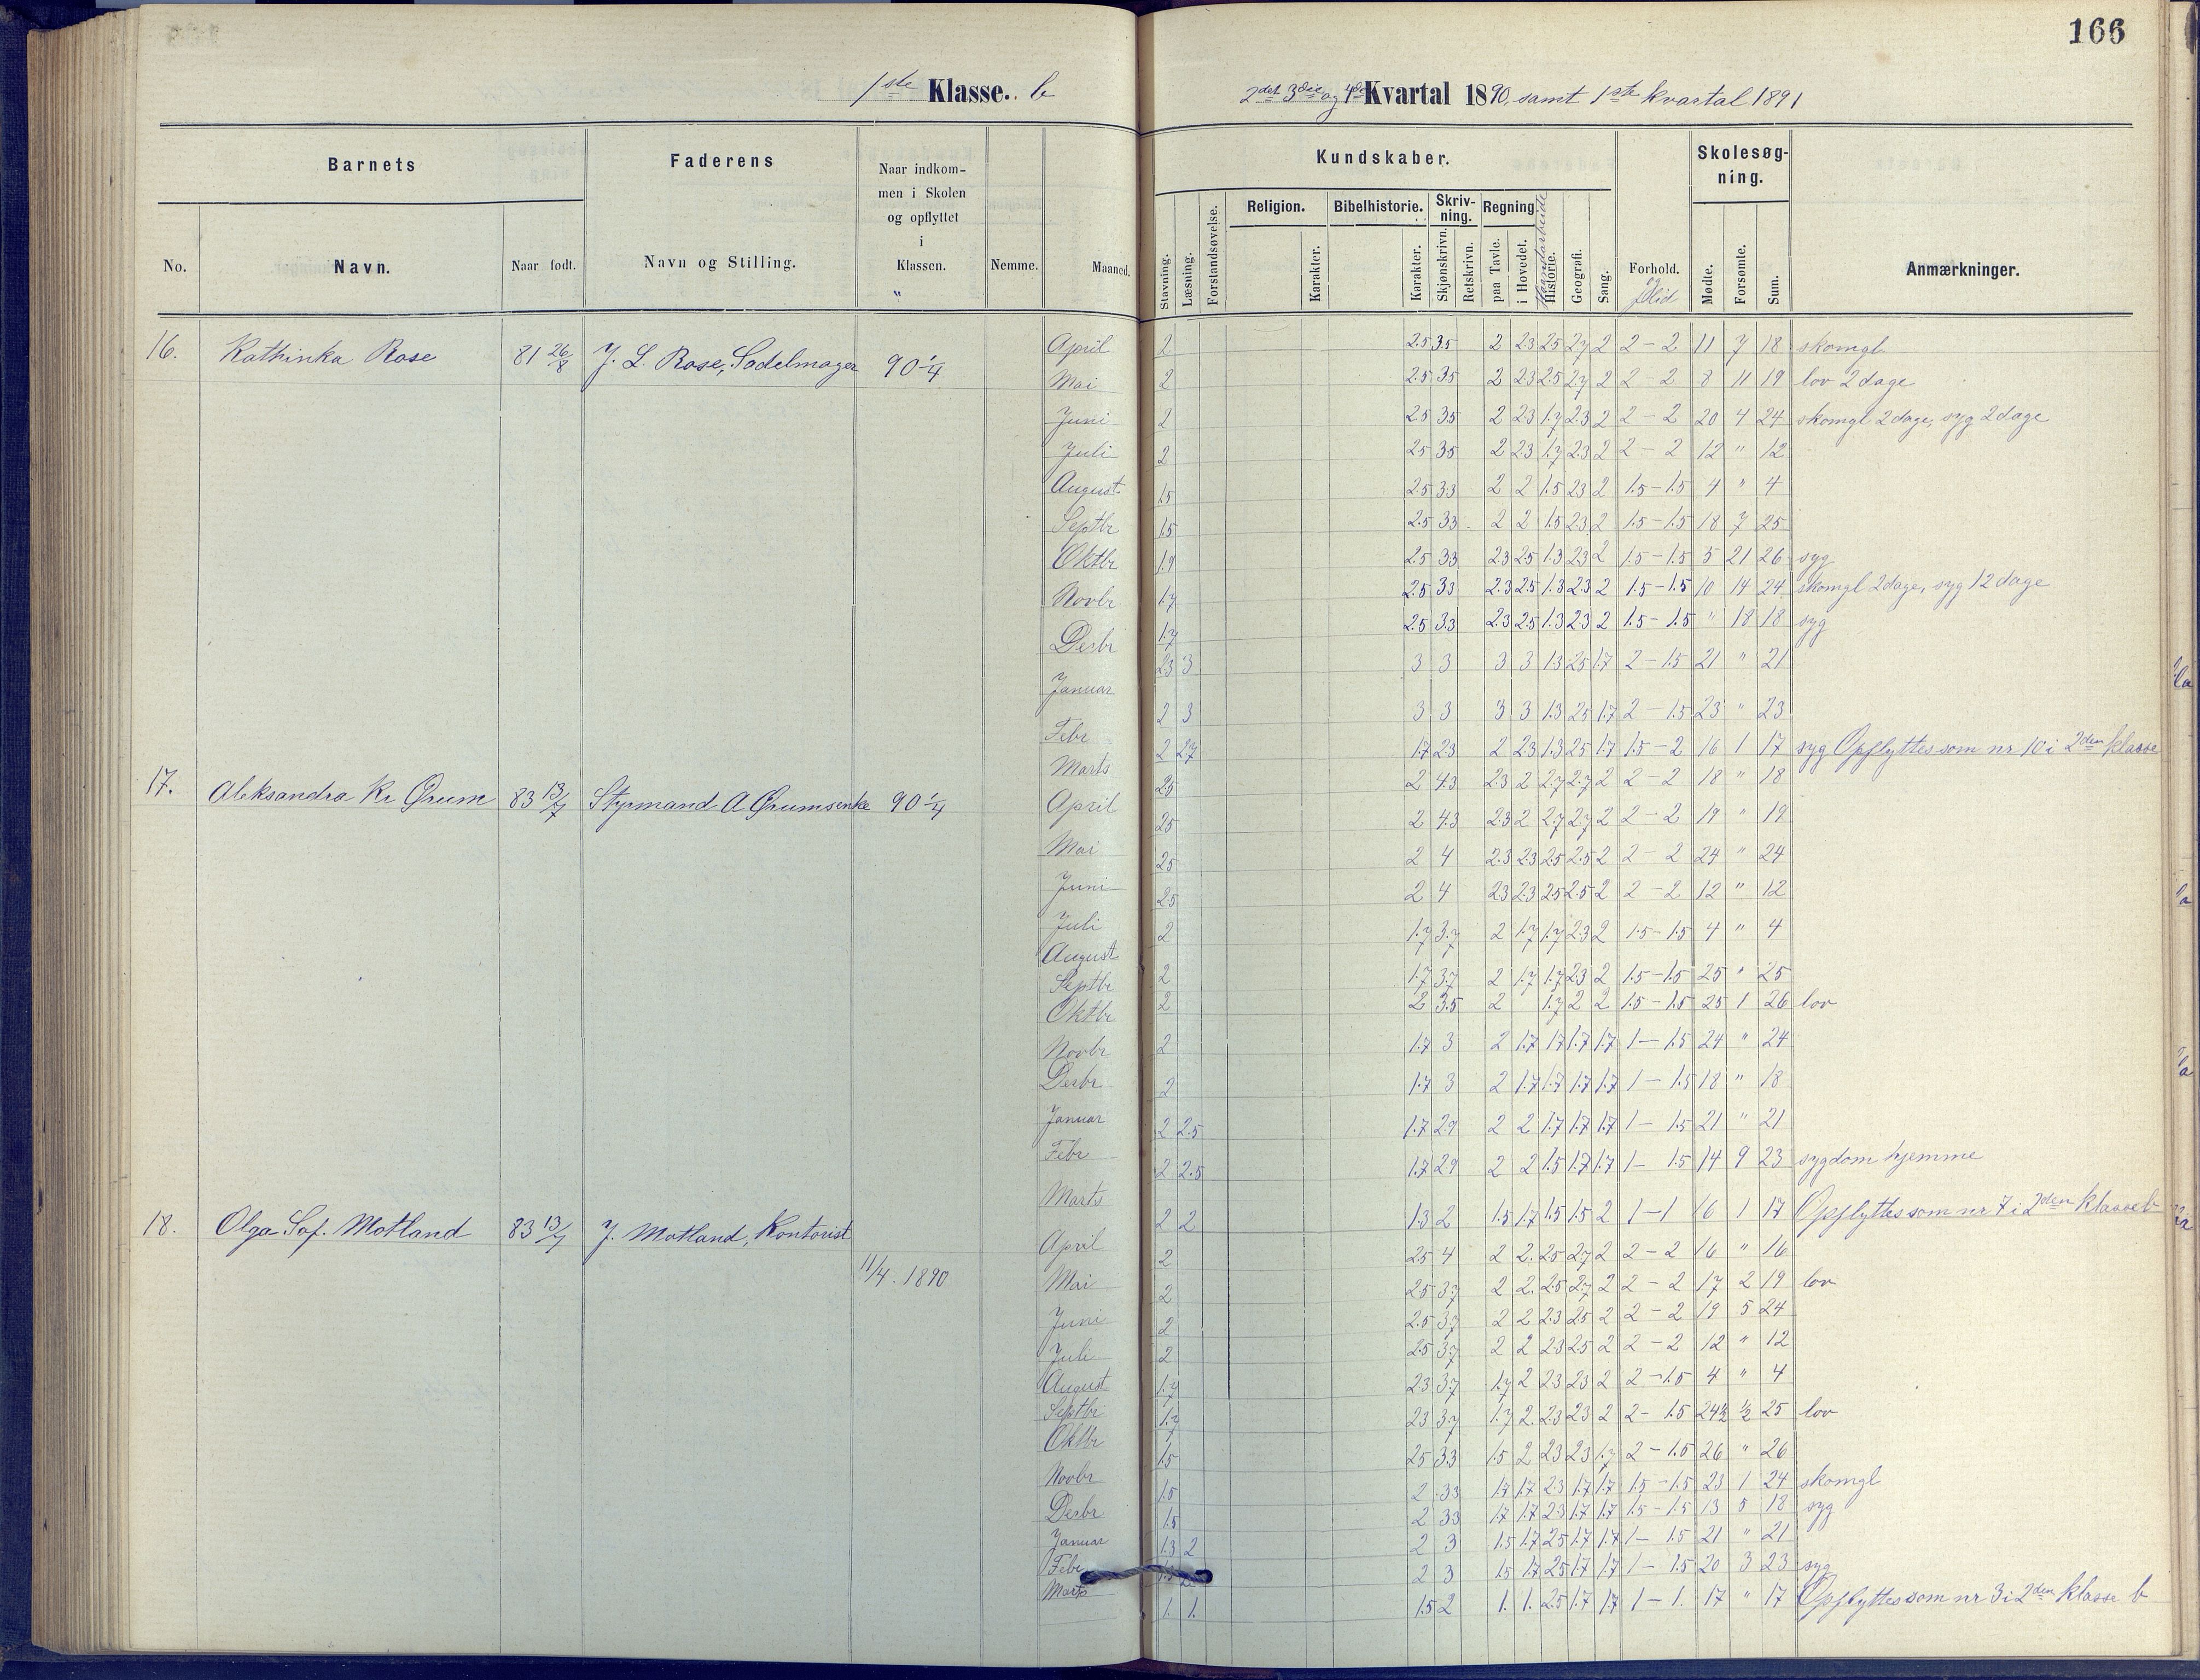 166
1ste Klasse. b
2det 3die og 4de Kvartal 1890, samt 1ste kvartal 1891
Barnets
Faderens
Naar indkommen i Skolen og opflyttet i Klassen.
Kundskaber.
Skolesøgning.
No. Navn. Naar født. Navn og Stilling. Nemme. Maaned.
Stavning. Læsning. Forstandsøvelse. Religion. Karakter. Bibelhistorie. Karakter. Skrivning. Skjønskrivn. Retskrivn. Regning paa Tavle. i Hovedet. Haandarbeide Historie. Geografi. Sang. Forhold. og flid Mødte. Forsømte. Sum. Anmærkninger.
16. Kathinka Rose 81 26/8 J. L. Rose, Sadelmager 90 1/4
April 2 2.5 3.5 2 2.3 2.5 2.7 2 2-2 11 7 18 skomgl
Mai 2 2.5 3.5 2 2.3 2.5 2.7 2 2-2 8 11 19 lov 2 dage
Juni 2 2.5 3.5 2 2.3 1.7 2.3 2 2-2 20 4 24 skomgl 2 dage, syg 2 dage
Juli 2 2.5 3.5 2 2.3 1.7 2.3 2 2-2 12 " 12
August 1.5 2.5 3.3 2 2 1.5 2.3 2 1.5-1.5 4 " 4
Septbr 1.5 2.5 3.3 2 2 1.5 2.3 2 1.5-1.5 18 7 25
Oktbr 1.9 2.5 3.3 2.3 2.5 1.3 2.3 2 1.5-1.5 5 21 26 syg
Novbr 1.7 2.5 3.3 2.3 2.5 1.3 2.3 2 1.5-1.5 10 14 24 skomgl 2 dage, syg 12 dage
Desbr 1.7 2.5 3.3 2.3 2.5 1.3 2.3 2 1.5-1.5 " 18 18 syg
Januar 2.3 3 3 3 3 3 1.3 2.5 1.7 2-1.5 21 " 21
Febr 2 3 3 3 3 3 1.3 2.5 1.7 2-1.5 23 " 23
Marts 2 2.7 1.7 2.3 2 2.3 1.3 2.5 1.7 1.5-2 16 1 17 syg Opflyttes som nr 10 i 2den klasse
17. Aleksandra Kr Ørum 83 13/7 Styrmand A Ørums enke 90 1/4
April 2.5 2 4.3 2.3 2 2.7 2.7 2 2-2 18 " 18
Mai 2.5 2 4.3 2.3 2 2.7 2.7 2 2-2 19 " 19
Juni 2.5 2 4 2.3 2.3 2.5 2.5 2 2-2 24 " 24
Juli 2.5 2 4 2.3 2.3 2.5 2.5 2 2-2 12 " 12
August 2 1.7 3.7 2 1.7 1.7 2.3 2 1.5-1.5 4 " 4
Septbr 2 1.7 3.7 2 1.7 1.7 2.3 2 1.5-1.5 25 " 25
Oktbr 2 2 3.5 2 1.7 2 2 1.5-1.5 25 1 26 lov
Novbr 2 1.7 3 2 1.7 1.7 1.7 1.7 1-1.5 24 " 24
Desbr 2 1.7 3 2 1.7 1.7 1.7 1.7 1-1.5 18 " 18
Januar 2 2.5 1.7 2.9 2 2 1.7 1.7 1.7 1-1.5 21 " 21
Febr 2 2.5 1.7 2.9 2 2 1.5 1.7 1.7 1-1.5 14 9 23 sygdom hjemme
Marts 2 2 1.3 2 1.5 1.7 1.5 1.5 2 1-1 16 1 17 Opflyttes som nr 7 i 2den klasse b
18. Olga Sof. Motland 83 13/7 J. Motland, Kontorist 11/4. 1890
April 2 2.5 4 2 2. 2.5 2.7 2 2-2 16 " 16
Mai 2 2.5 3.7 2 2. 2.5 2.7 2 2-2 17 2 19 lov
Juni 2 2.5 3.7 2 2 2.3 2.5 2 2-2 19 5 24
Juli 2 2.5 3.7 2 2 2.3 2.5 2 2-2 12 " 12
August 1.7 2.3 3.7 1.7 2 2.3 2.3 2 2-1.5 4 " 4
Septbr 1.7 2.3 3.7 1.7 2. 2.3 2.3 2 2-1.5 24½ ½ 25 lov
Oktbr 1.5 2.5 3.3 1.5 2 2.3 2.3 1.7 2-1.5 26 " 26
Novbr 1.5 2 3.3 1.7 1.7 2.3 1.7 1.7 1.5-1.5 23 1 24 skomgl
Desbr 1.5 2 3.3 1.7 1.7 2.3 1.7 1.7 1.5-1.5 13 5 18 syg
Januar 1.3 2 2 3 1.5 1.7 2.5 1.7 1.7 1-1.5 21 " 21
Febr 2 3 1.5 1.7 2.5 1.7 1.7 1-1.5 20 3 23 syg
Marts 1. 1. 1.5 2 1. 1. 2.5 1.7 1.7 1-1. 17 " 17 Opflyttes som nr 3 i 2den klasse b